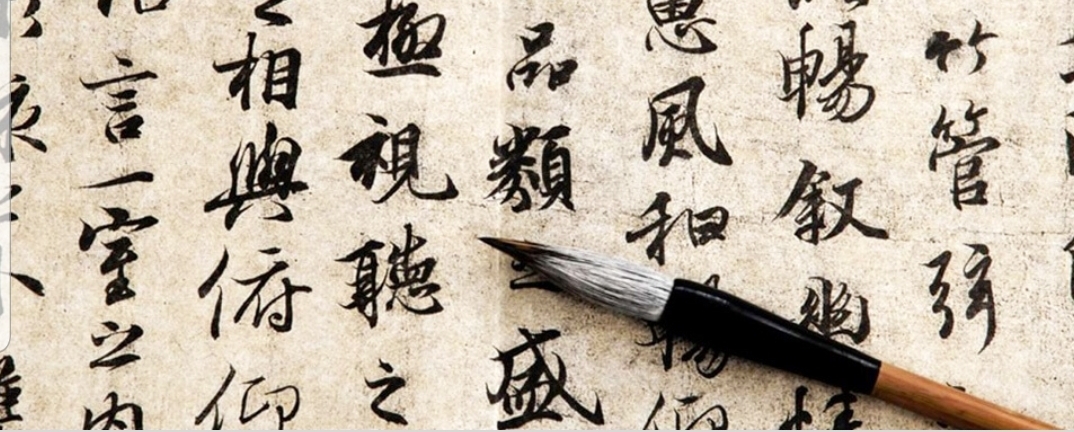 竹管弦
暢叙幽情
惠風和暢仰
品類之盛
極視聽之
之相與俯仰
言一室之内